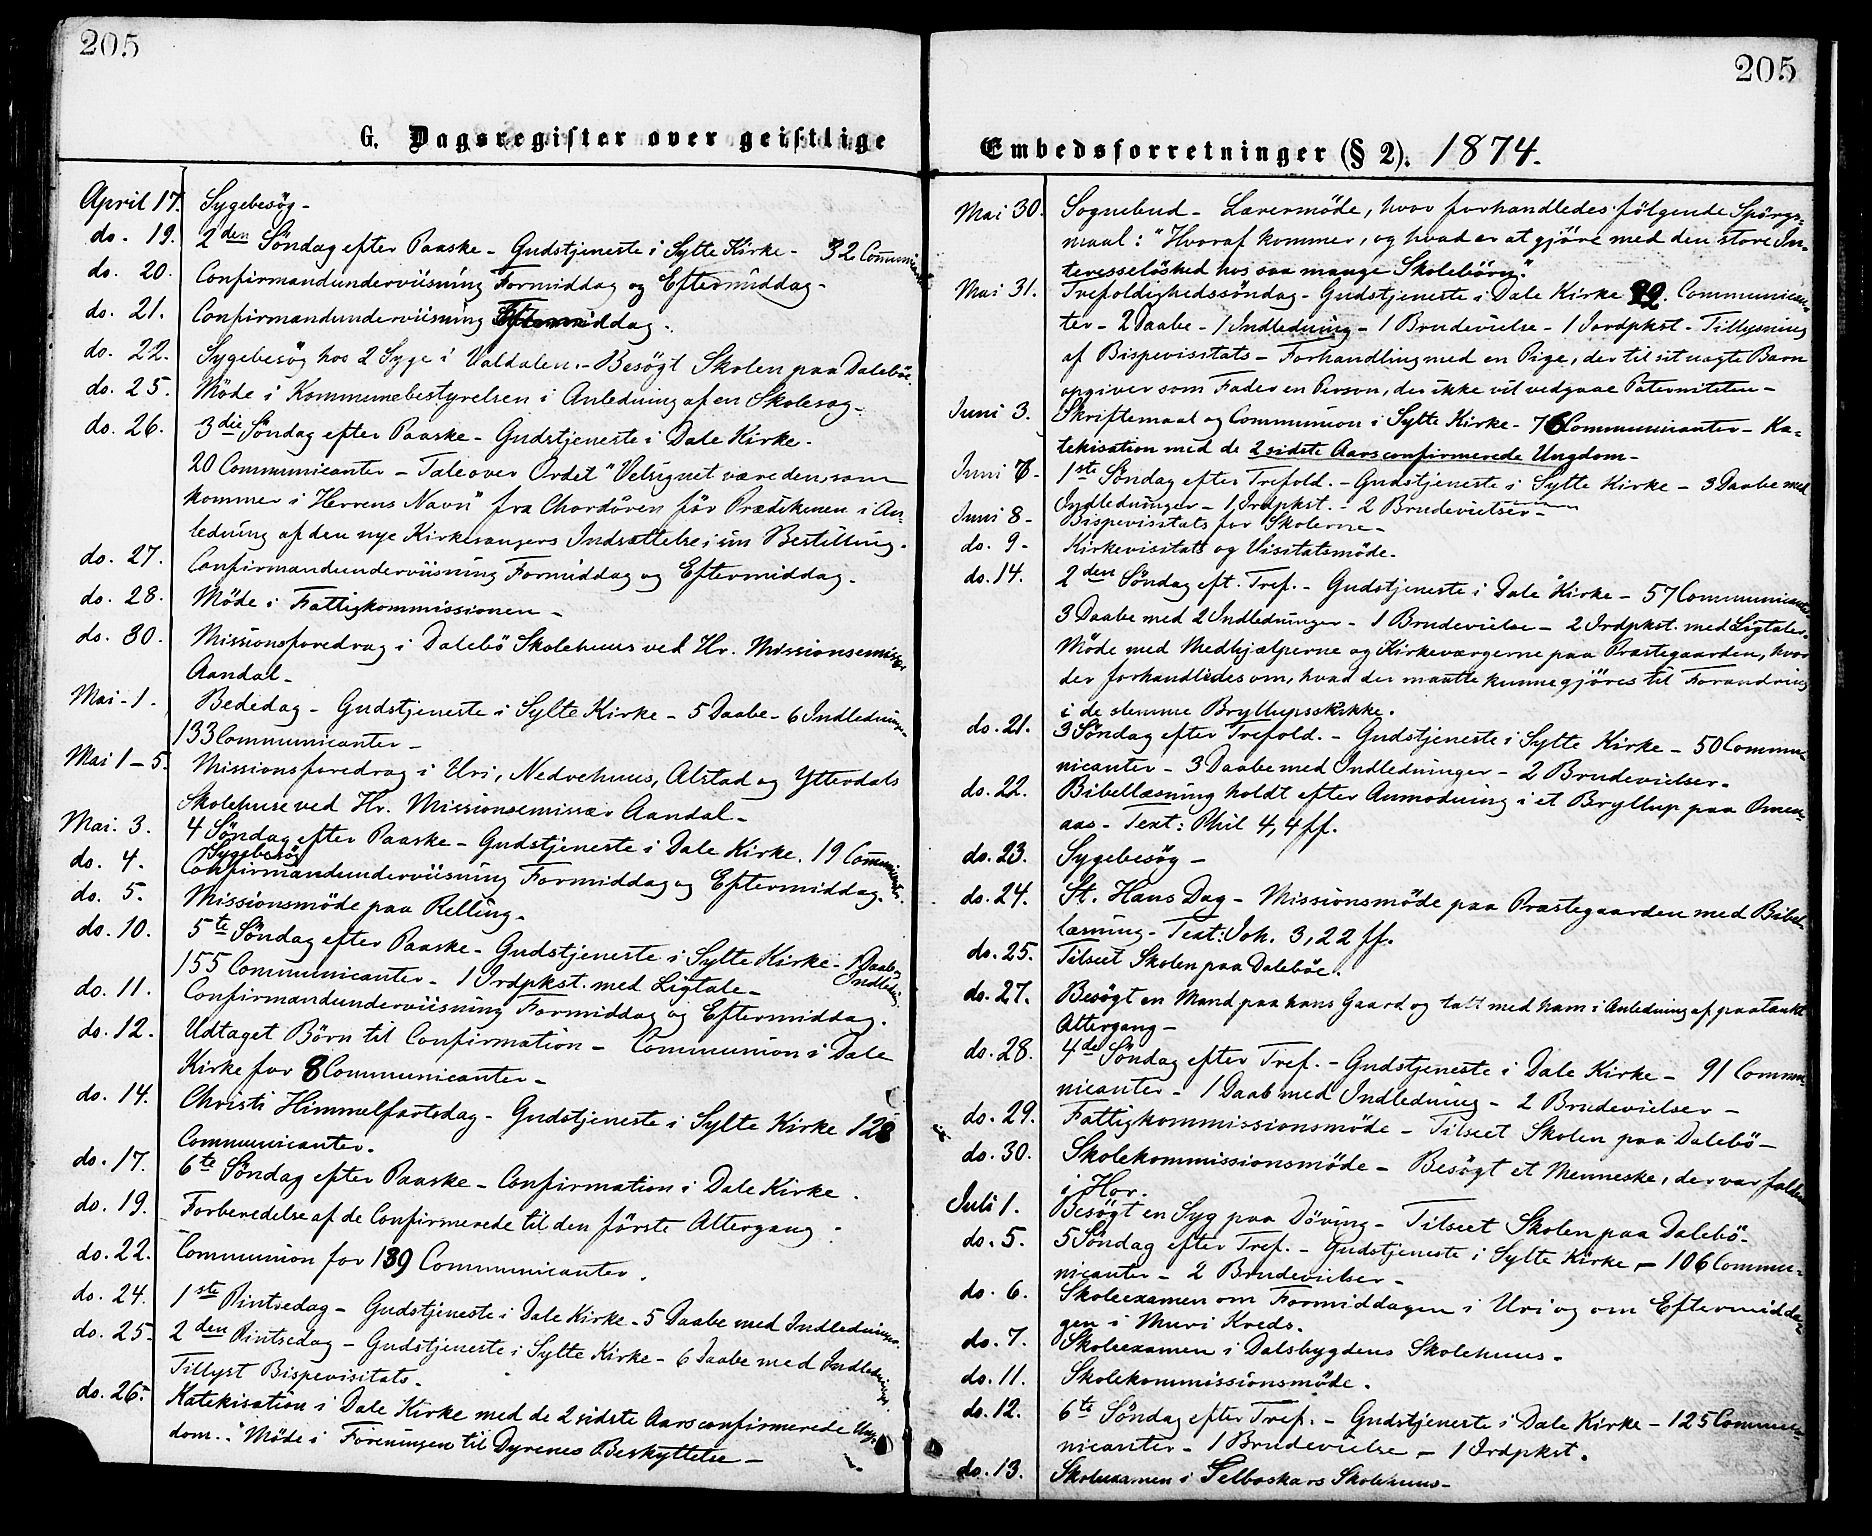 205
G. Dagsregister over geistlige
April 17. Sygebesög -
do. 19. 2den Söndag efter Paaske - Gudstjeneste i Sylte Kirke - 32 Communicanter
do. 20. Confirmandunderviisning Formiddag og Eftermiddag -
do. 21. Confirmandunderviisning Eftermiddag.
do. 22. Sygebesög hos 2 Syge i Valdalen. - Besögt Skolen paa Daleböe.
do. 25. Möde i Kommunebestyrelsen i Anledning af en Skolesag -
do. 26. 3die Söndag efter Paaske - Gudstjeneste i Dale Kirke -
20 Communicanter - Tale over Ordet "Velsignet være den, som
kommer i Herrens Navn" fra Chordören för Prædikenen i An-
ledning af den nye Kirkesangers Indsættelse i sin Bestilling.
do. 27. Confirmandunderviisning Formiddag og Eftermiddag.
do. 28. Möde i Fattigkommissionen -
do. 30. Missionsforedrag i Dalebö Skolehuus ved Hr. Missionsemissær
Aandal -
Mai - 1. Bededag - Gudstjeneste i Sylte Kirke - 5 Daabe - 6 Indledninger
133 Communicanter -
Mai 1-5. Missionsforedrag i Uri, Nedrehuus, Alstad og Ytterdals
Skolehuse ved Hr. Missionsemissær Aandal -
Mai. 3. 4 Söndag efter Paaske - Gudstjeneste i Dale Kirke. 19 Communicanter.
Sygebesög
do. 4. Confirmandunderviisning Formiddag og Eftermiddag.
do. 5. Missionsmöde paa Relling -
do. 10. 5te Söndag efter Paaske - Gudstjeneste i Sylte Kirke - 1 Daab
155 Communicanter - 1 Jrdpkst. med Ligtale - Indledn.
do. 11. Confirmandunderviisning Formiddag og Eftermiddag.
do. 12. Udtaget Börn til Confirmation - Communion i Dale
Kirke for 8 Communicanter -
do. 14. Christi Himmelfartsdag - Gudstjeneste i Sylte Kirke 128
Communicanter.
do. 17. 6te Söndag efter Paaske - Confirmation i Dale Kirke.
do. 19. Forberedelse af de Confirmerede til den förste Altergang.
do. 22. Communion for 139 Communicanter.
do. 24. 1ste Pintsedag - Gudstjeneste i Dale Kirke - 5 Daabe med Indledninger.
do. 25. 2den Pintsedag - Gudstjeneste i Sylte Kirke - 6 Daabe med Indledninger.
Tillyst Bispevisitats.
do. 26. Katekisation i Dale Kirke med de 2 sidste Aars confirmerede Ung-
dom. Möde i Foreningen til Dyrenes Beskyttelse -
205
Embedsforretninger (§ 2). 1874.
Mai 30. Sognebud - Lærermöde, hvor forhandledes fölgende Spörgs-
maal: "Hvoraf kommer, og hvad er at gjöre med den store In-
teresselöshed hos saa mange Skolebörn."
Mai 31. Trefoldighedssöndag - Gudstjeneste i Dale Kirke Communican-
ter - 2 Daabe - 1 Indledning - 1 Brudevielse - 1 Jordpkst - Tillysning
af Bispevisitats - Forhandling med en Pige, der til sit uægte Barn
opgiver som Fader en Person, der ikke vil vedgaae Paterniteten -
Juni 3. Skriftemaal og Communion i Sylte Kirke - 76 Communicanter - Ka-
tekisation med de 2 sidste Aars confirmerede Ungdom -
Juni 7 - 1ste Söndag efter Trefold. - Gudstjeneste i Sylte Kirke - 3 Daabe med
Indledninger - 1 Jrdpkst. - 2 Brudevielser -
Juni 8 - Bispevisitats for Skolerne -
do. 9 - Kirkevisitats og Visitatsmöde.
do. 14. 2den Söndag eft. Tref. - Gudstjeneste i Dale Kirke - 57 Communicanter
3 Daabe med 2 Indledninger - 1 Brudevielse - 2 Jrdpkst. med Ligtaler.
Möde med Medhjælperne og Kirkeværgerne paa Præstegaarden, hvor
der forhandledes om, hvad der maatte kunne gjöres til Forandring
i de slemme Bryllupsskikke.
do. 21. 3 Söndag efter Trefold. - Gudstjeneste i Sylte Kirke - 50 Commu-
nicanter - 3 Daabe med Indledninger - 2 Brudevielser -
do. 22. Bibellæsning holdt efter Anmodning i et Bryllup paa Omen-
aas - Text: Phil 4,4 ff.
do. 23. Sygebesög -
do. 24. St. Hans Dag - Missionsmöde paa Præstegaarden med Bibel-
læsning - Text: Joh. 3,22 ff.
do. 25. Tilseet Skolen paa Daleböe.
do. 27. Besögt en Mand paa hans Gaard og talt med ham i Anledning af paatænkt
Altergang -
do. 28. 4de Söndag efter Tref. - Gudstjeneste i Dale Kirke - 91 Commu-
nicanter - 1 Daab med Indledning - 2 Brudevielser -
do. 29. Fattigkommissionsmöde - Tilseet Skolen paa Dalebö -
do. 30. Skolekommissionsmöde - Besögt et Menneske, der var falden
i Hor.
Juli 1. Besögt en Syg paa Döving - Tilseet Skolen paa Dalebö -
do. 5. 5 Söndag efter Tref. - Gudstjeneste i Sylte Kirke - 106 Commu-
nicanter - 2 Brudevielser -
do. 6. Skoleexamen om Formiddagen i Uri og om Eftermidda-
gen i Muri Kreds.
do. 7. Skoleexamen i Dalsbygdens Skolehuus.
do. 11. Skolekommissionsmöde.
do. 12. 6te Söndag efter Tref. - Gudstjeneste i Dale Kirke - 125 Commu-
nicanter - 1 Brudevielse - 1 Jrdpkst.
do. 13. Skoleexamen i Selboskars Skolehuus -